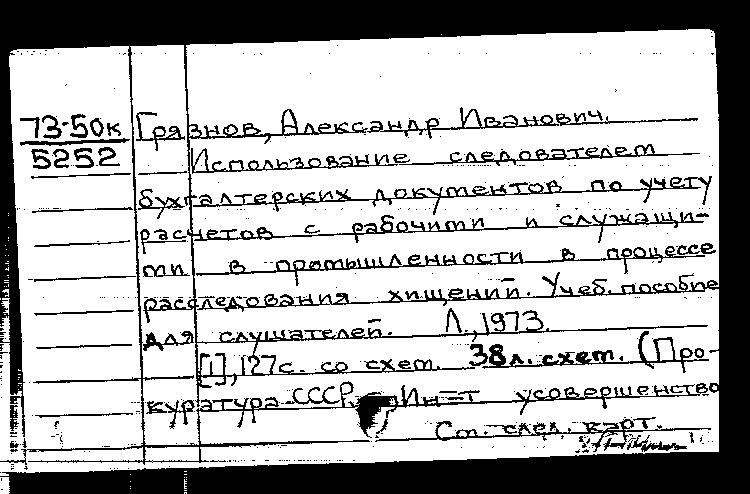 73-50к Грязнов, Александр Иванович.
5252 Использование следователем
бухгалтерских документов по учету
расчетов с рабочими и служащи-
ми в промышленности в процессе
расследования хищений. Учеб. пособие
для слушателей. Л., 1973.
[1], 127 с. со схем. 38 л. схем. (Про-
куратура СССР. Ин-т усовершенство
См. след. карт.